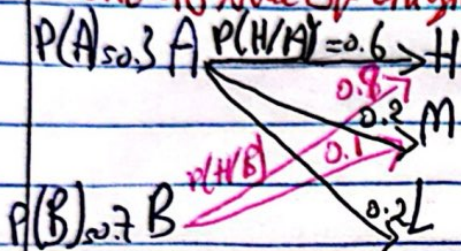 P(A)=0.3 A P(H/A)=0.6 H
0.8
0.2 M
0.1
P(H/B)
P(B)=0.7 B 0.2 L